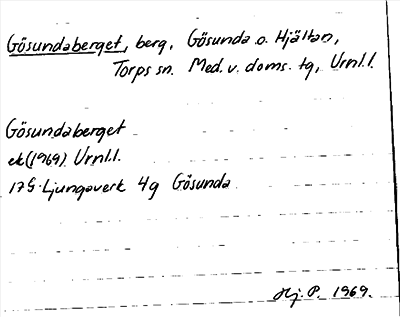 Gösundaberget, berg, Gösunda o. Hjältan,
Torps sn. Med. v. doms. tg, Urnl.l.
Gösundaberget
ek(1969) Urnl.l.
17G Ljungaverk 4g Gösunda
Hj. P. 1969.